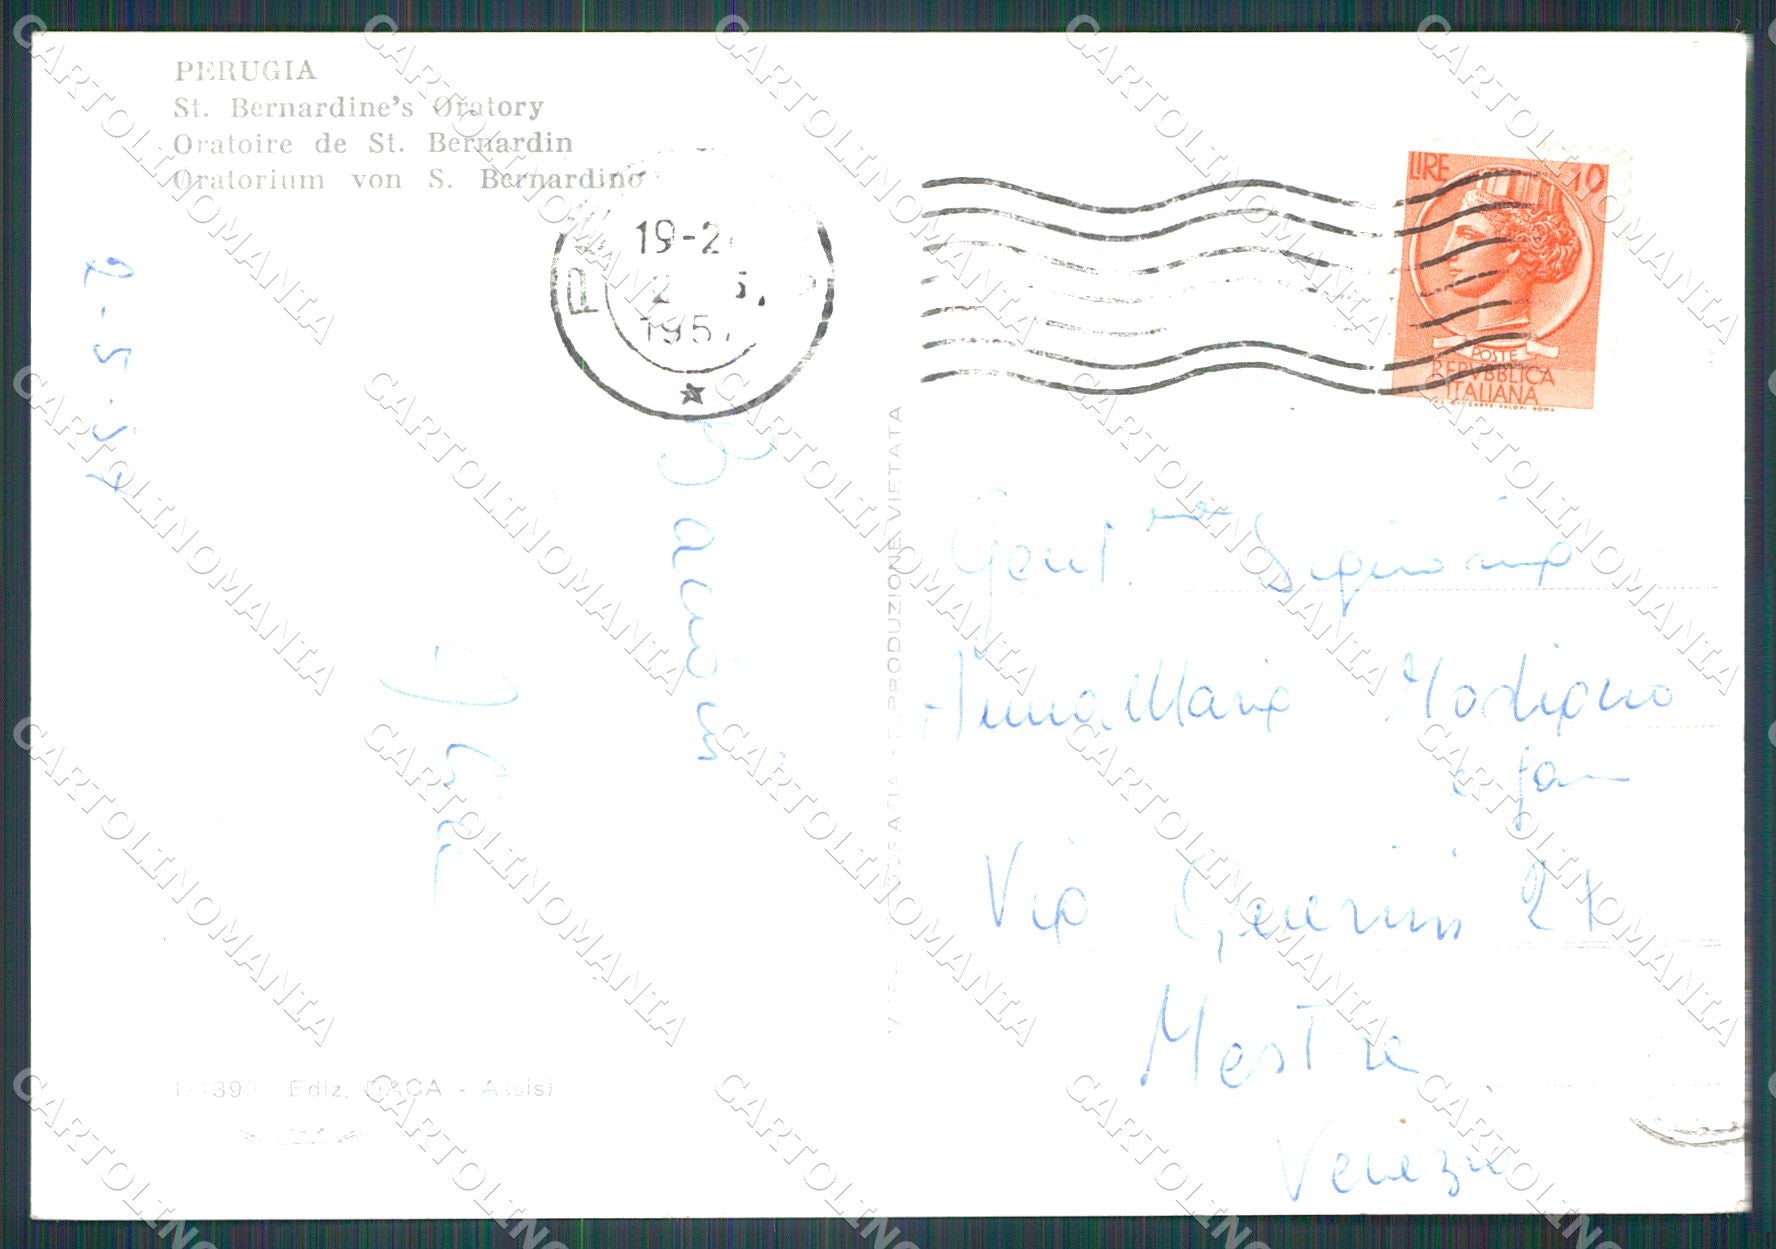 PERUGIA
St. Bernardine's Oratory
Oratoire de St. Bernardin
Oratorium von S. Bernardino
19-2
2 5
195
LIRE 10
POSTE
REPVBBLICA
ITALIANA
2-5-57
Bacioni
RIPRODUZIONE VIETATA
Gent.ma Signorina
Anna Maria Modigno
e fam
Via Querini 27
Mestre
Venezia
Ediz. DACA - Assisi
CARTOLINOMANIA